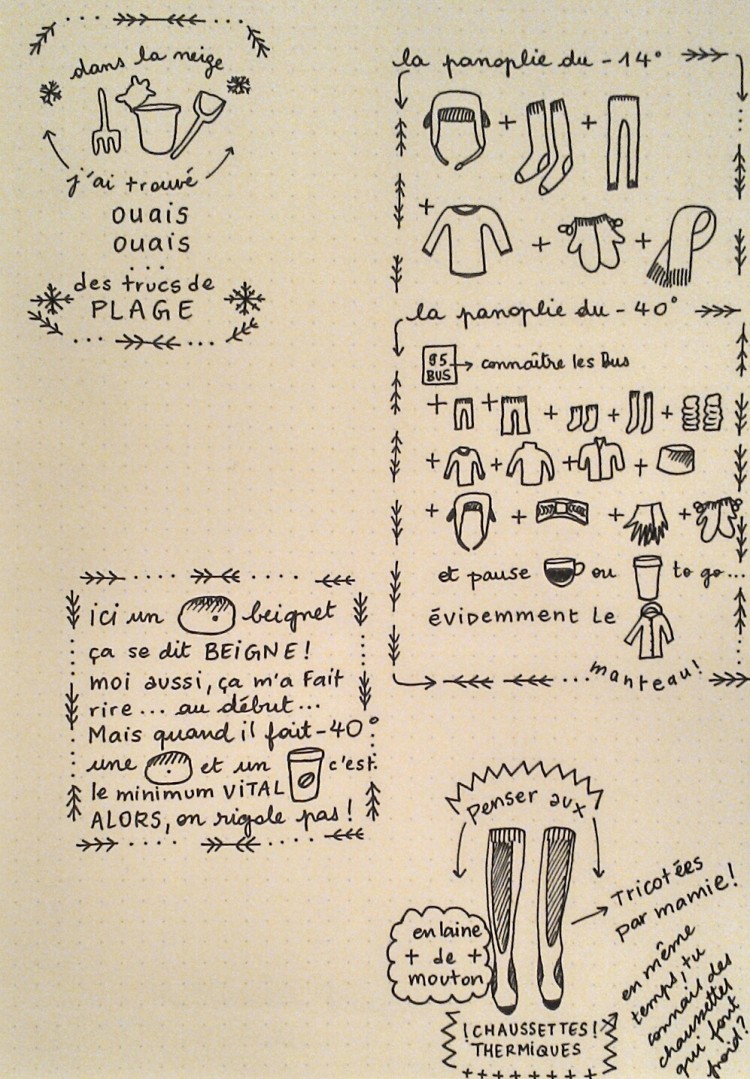 dans la neige
j'ai trouvé
ouais
ouais
...
des trucs de
PLAGE
la panoplie du -14°
+ +
+ + +
la panoplie du -40°
95
BUS
connaître les Bus
+ + + + +
+ + + +
+ + + +
et pause ou to go...
éviDemment Le
manteau!
ici un beignet
ça se dit BEiGNE!
moi aussi, ça m'a Fait
rire... au début...
Mais quand il fait -40°
une et un c'est
le minimum ViTAL
ALORS, on rigole pas!
Penser aux
en laine
+ de +
mouton
! CHAUSSETTES !
THERMiQUES
Tricotées
par mamie!
en même
temps, tu
connais des
chaussettes
qui font
froid?